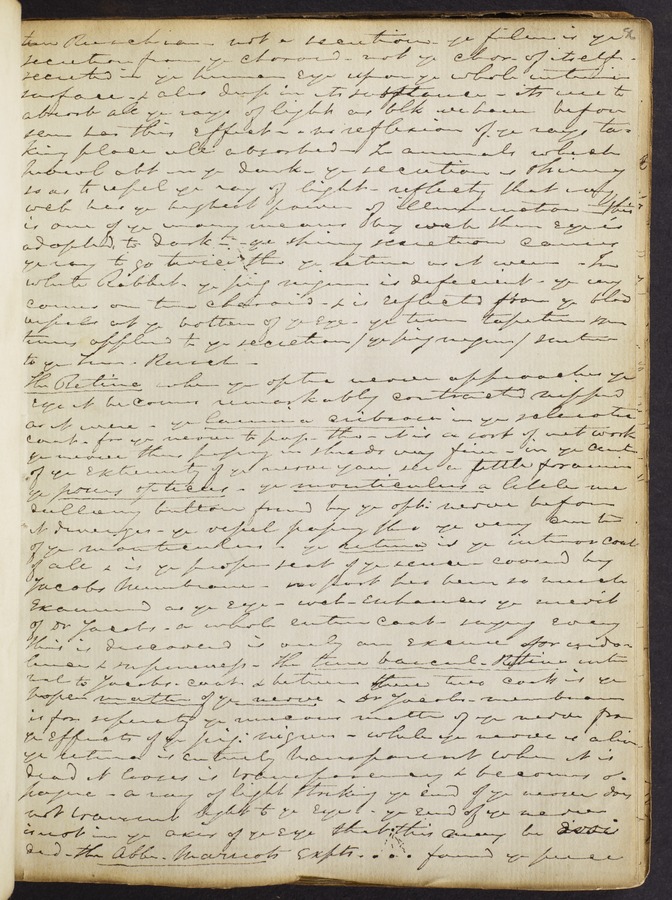 tun Ruischian - not a secretion - ye film is ye
secretion from ye choroid - not ye chor. of itself -
secreted in ye human Eye upon ye whole interior
surface & also deep in its substance - its use to
absorb all ye rays of light as blk we have before
seen has this effect - no reflexion of ye rays ta-
king place all absorbed - In animals which
prowl abt in ye dark - ye secretion is Shining
so as to repel ye ray of light - reflects that ray
wch has ye highest power of illumination - This
is one of ye many means by wch their Eye is
adapted to dark - ye shining secretion causes
ye ray to go twice thro ye retina as it were - In
white Rabbit - ye pig. nigrum is deficient - ye ray
comes on tun choroid - & is reflected from ye blood
vessels at ye bottom of ye Eye - ye term tapetum
applied to ye secretion / ye pig nigrum /
to ye Tun. Ruisch -
The Retina when ye optic nerve approaches ye
Eye it becomes remarkably contracted nipped
as it were - ye lamina cribrosa in ye sclerotic
coat - for ye nerve to pass thro - it is a sort of net work
ye nerve thus passing in threads very fine - in ye cent
of ye Extremity of ye nerve you see a little foramen
ye porus opticus - ye monticulus a little me
dullary button formd by ye optic nerve before
it diverges - ye vessel passing thro ye very centre
of ye monticulus - ye retina is ye interior coat
of all & is ye proper seat of ye sense coverd by
Jacobs Membrane - no part has been so much
Examined as ye Eye - wch Enhances ye merit
of Dr Jacobs - a whole entire coat - saying every
thing is discovered is only an excuse for indo
lence & supineness - The tun vascul. Retinae inter
nal to Jacobs coat & between these two coats is ye
proper matter of ye nerve - Dr Jacobs membrane
is for separatg ye mucous matter of ye nerve from
ye Effects of ye pig. nigrum - while ye nerve is alive
ye retina is entirely transparent when it is
dead it looses its transparency & becomes o-
paque - a ray of light striking ye end of ye nerve does
not transmit light to ye Eye - ye End of ye nerve
is not in ye axis of ye Eye that this may be
ded - the Abbe Mariots Expts . . . . found ye